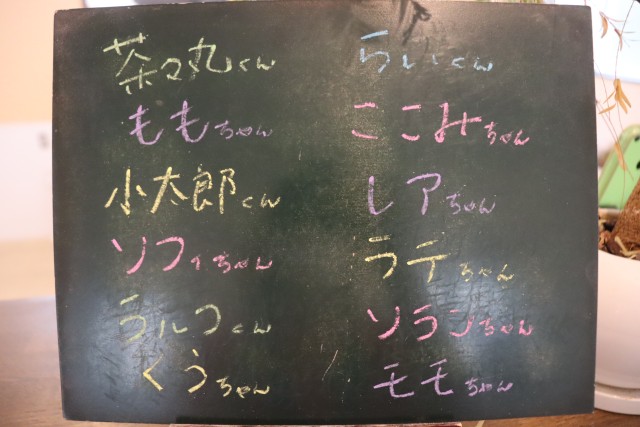 茶々丸くん
ももちゃん
小太郎くん
ソフィちゃん
ラルフくん
くうちゃん
らいくん
ここみちゃん
レアちゃん
ラテちゃん
ソランちゃん
モモちゃん